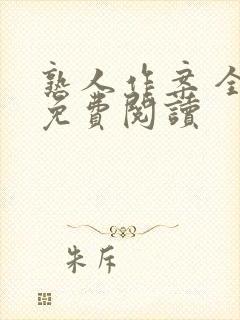 熟人作案全
免費閱讀
朱斥